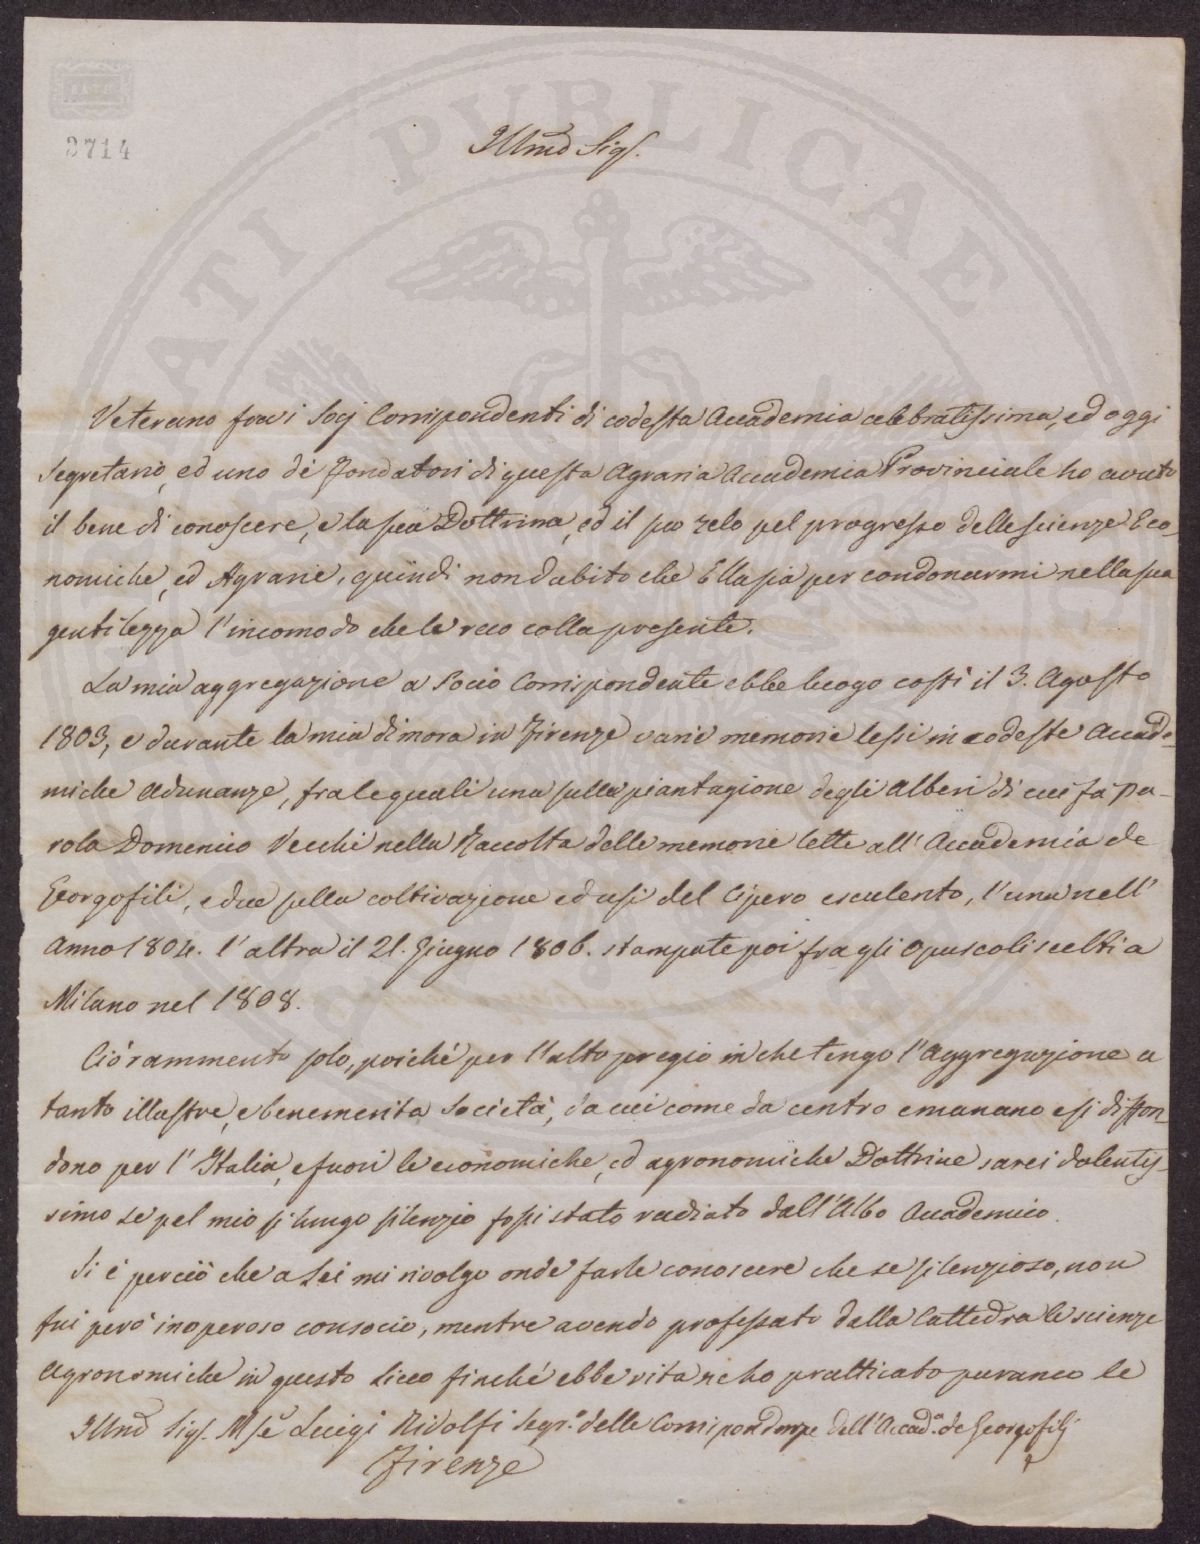 2714
PUBLICAE
ATI
Illmo Sigr.
Veterano fra i Socj Corrispondenti di codesta Accademia celebratissima, ed oggi
Segretario, ed uno dè Fondatori di questa Agraria Accademia Provinciale ho avuto
il bene di conoscere, e la sua Dottrina, ed il suo zelo pel progresso delle scienze Eco-
nomiche, ed Agrarie, quindi non dubito che Ella sia per condonarmi nella sua
gentilezza l'incomodo che le reco colla presente.
La mia aggregazione a Socio Corrispondente ebbe luogo costì il 3. Agosto
1803, e durante la mia dimora in Firenze varie memorie lessi in codeste Accade-
miche Adunanze, fra le quali una sulla piantagione degli Alberi di cui fà pa-
rola Domenico Vecchi nella Raccolta delle memorie lette all'Accademia de
Georgofili, e due sulla coltivazione ed usi del Cipero esculento, l'una nell'
Anno 1804. l'altra il 21. Giugno 1806. stampate poi fra gli Opuscoli scelti a
Milano nel 1808.
Ciò rammento solo, poiché per l'alto pregio in che tengo l'Aggregazione a
tanto illustre, e benemerita Società, da cui come da centro emanano e si diffon-
dono per l'Italia, e fuori le economiche, ed agronomiche Dottrine sarei dolentis-
simo se pel mio sì lungo silenzio fossi stato radiato dall'Albo Accademico.
Si è perciò che a Lei mi rivolgo onde farle conoscere che se silenzioso, non
fui però inoperoso consocio, mentre avendo professato dalla Cattedra le scienze
Agronomiche in questo Liceo finché ebbe vita ne ho pratticato puranco le
Illmo Sigr. Mse Luigi Ridolfi Segr.o delle Corrispondenze dell'Accad.a de Georgofilj
Firenze